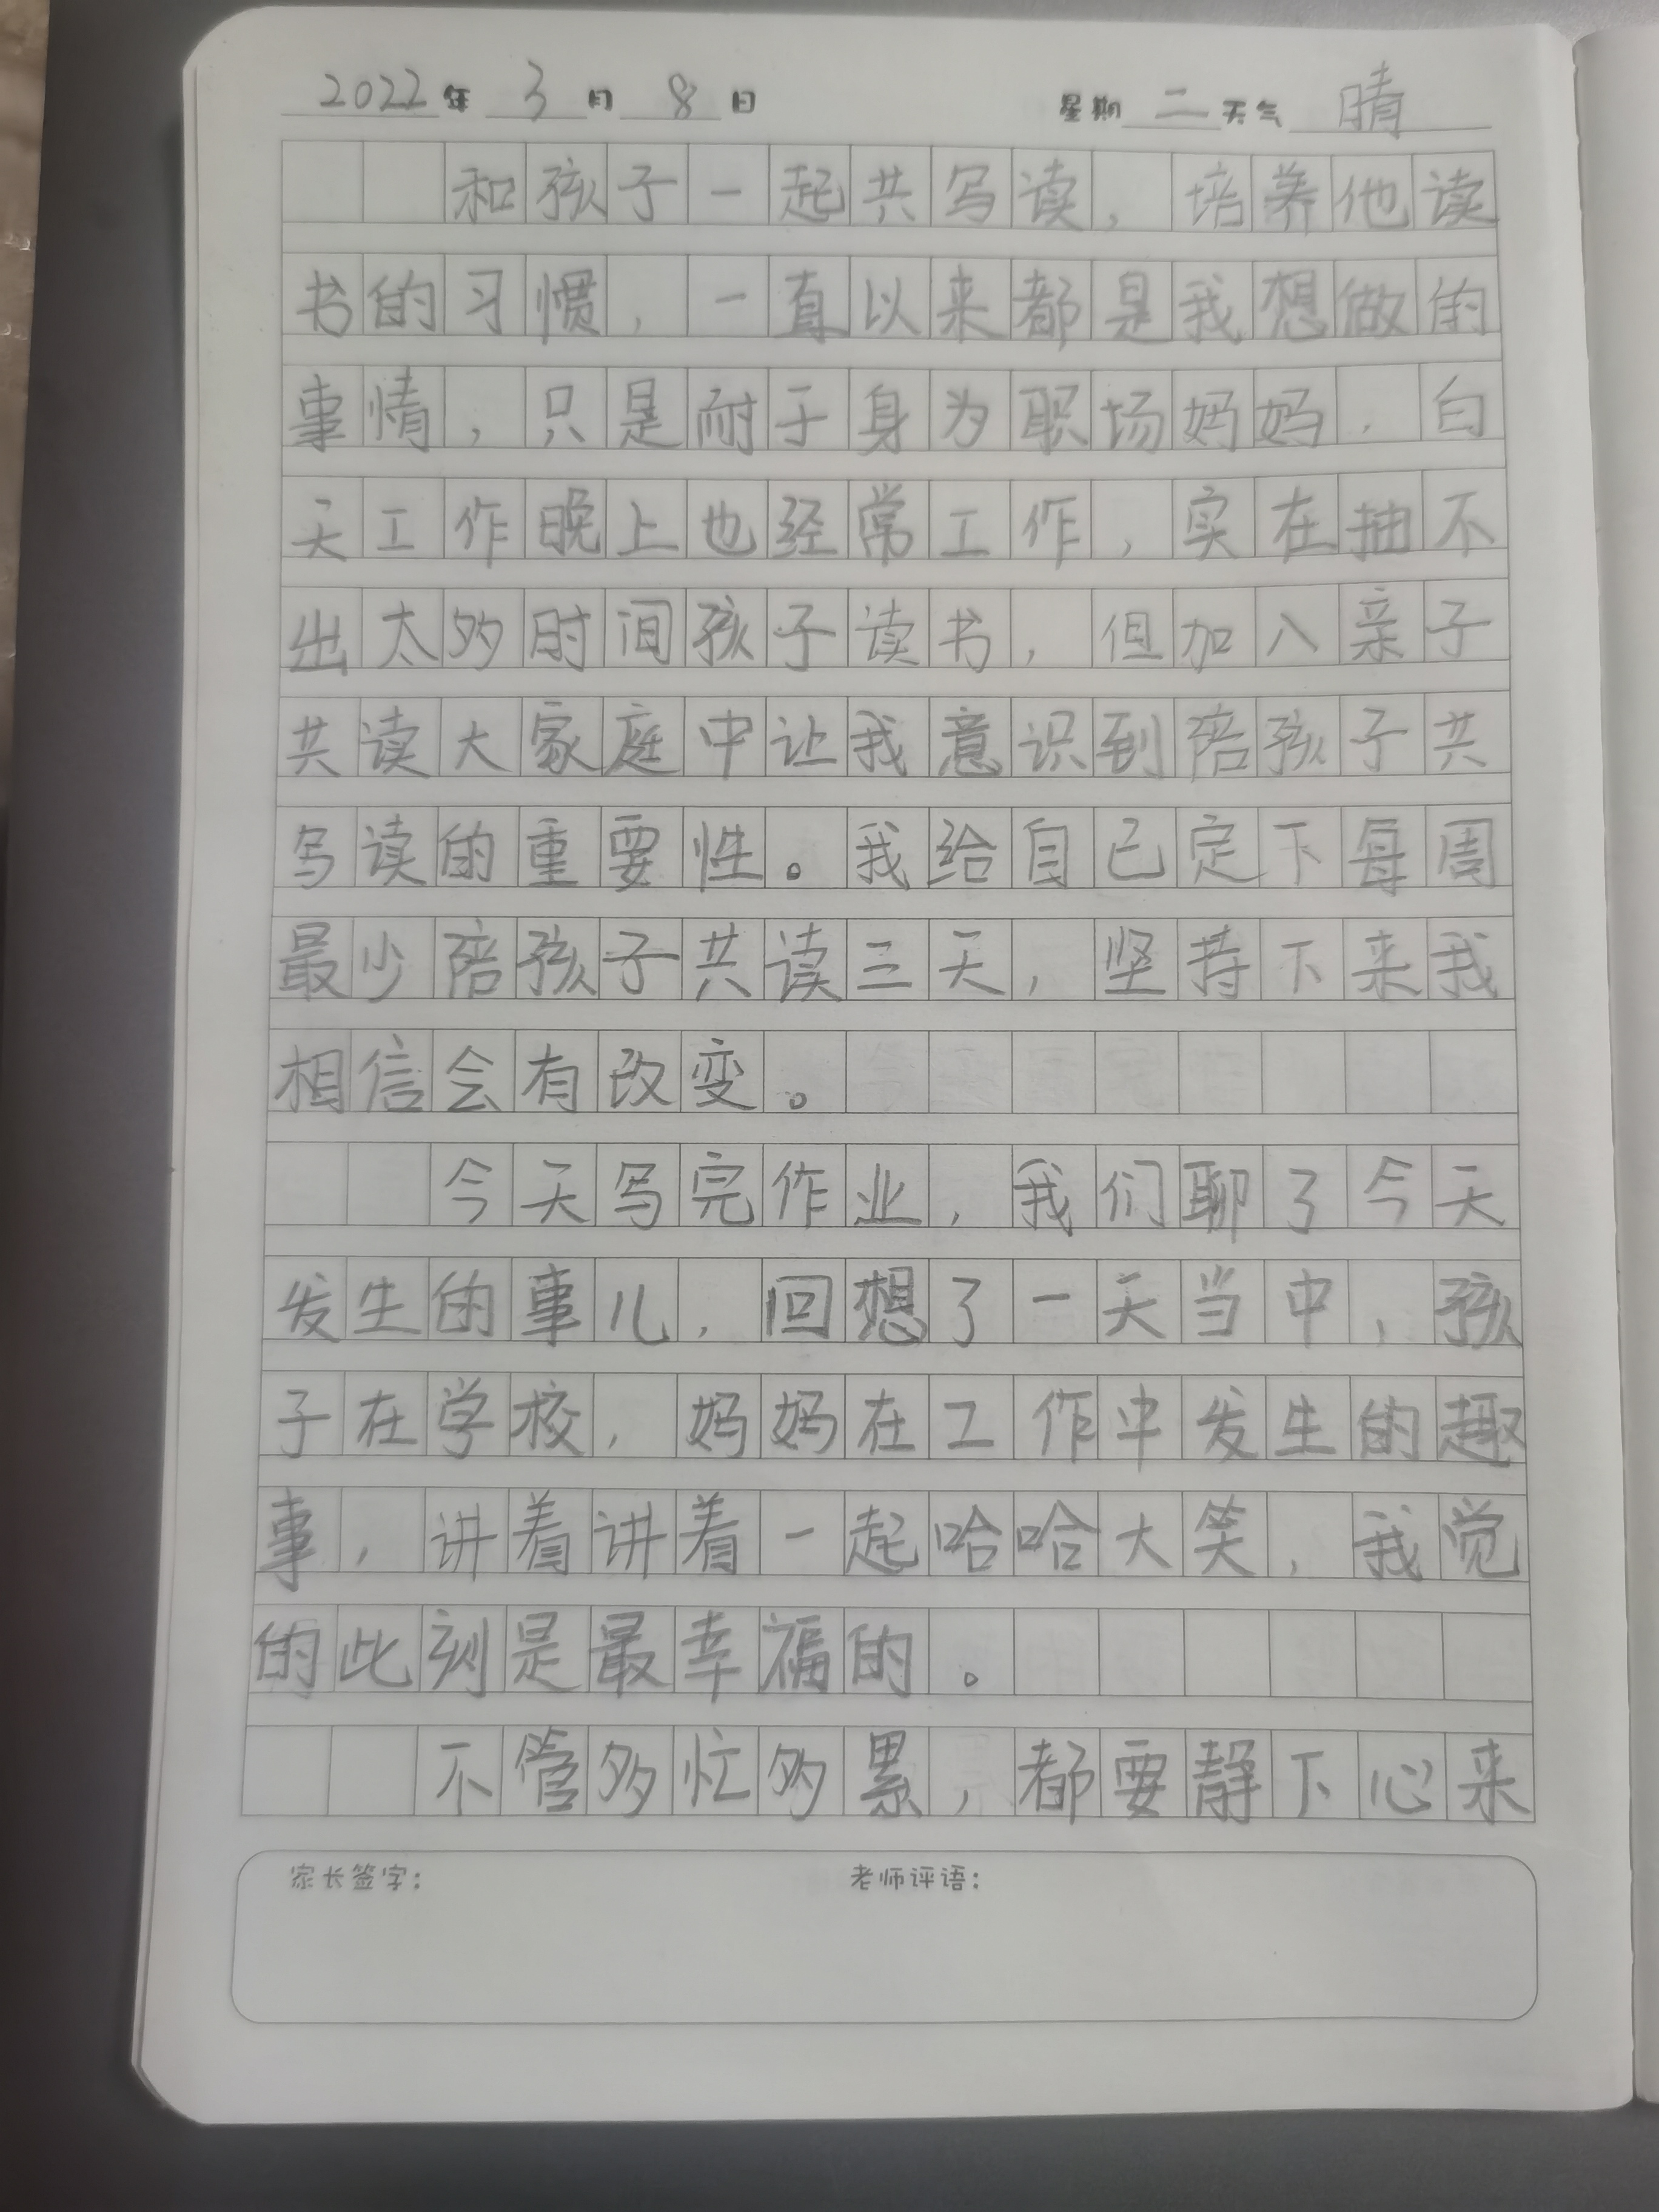 2022年3月8日 星期二天气晴
和孩子一起共写读，培养他读
书的习惯，一直以来都是我想做的
事情，只是耐于身为职场妈妈，白
天工作晚上也经常工作，实在抽不
出太多时间孩子读书，但加入亲子
共读大家庭中让我意识到陪孩子共
写读的重要性。我给自己定下每周
最少陪孩子共读三天，坚持下来我
相信会有改变。
今天写完作业，我们聊了今天
发生的事儿，回想了一天当中，孩
子在学校，妈妈在工作中发生的趣
事，讲着讲着一起哈哈大笑，我觉
的此刻是最幸福的。
不管多忙多累，都要静下心来
家长签字： 老师评语：